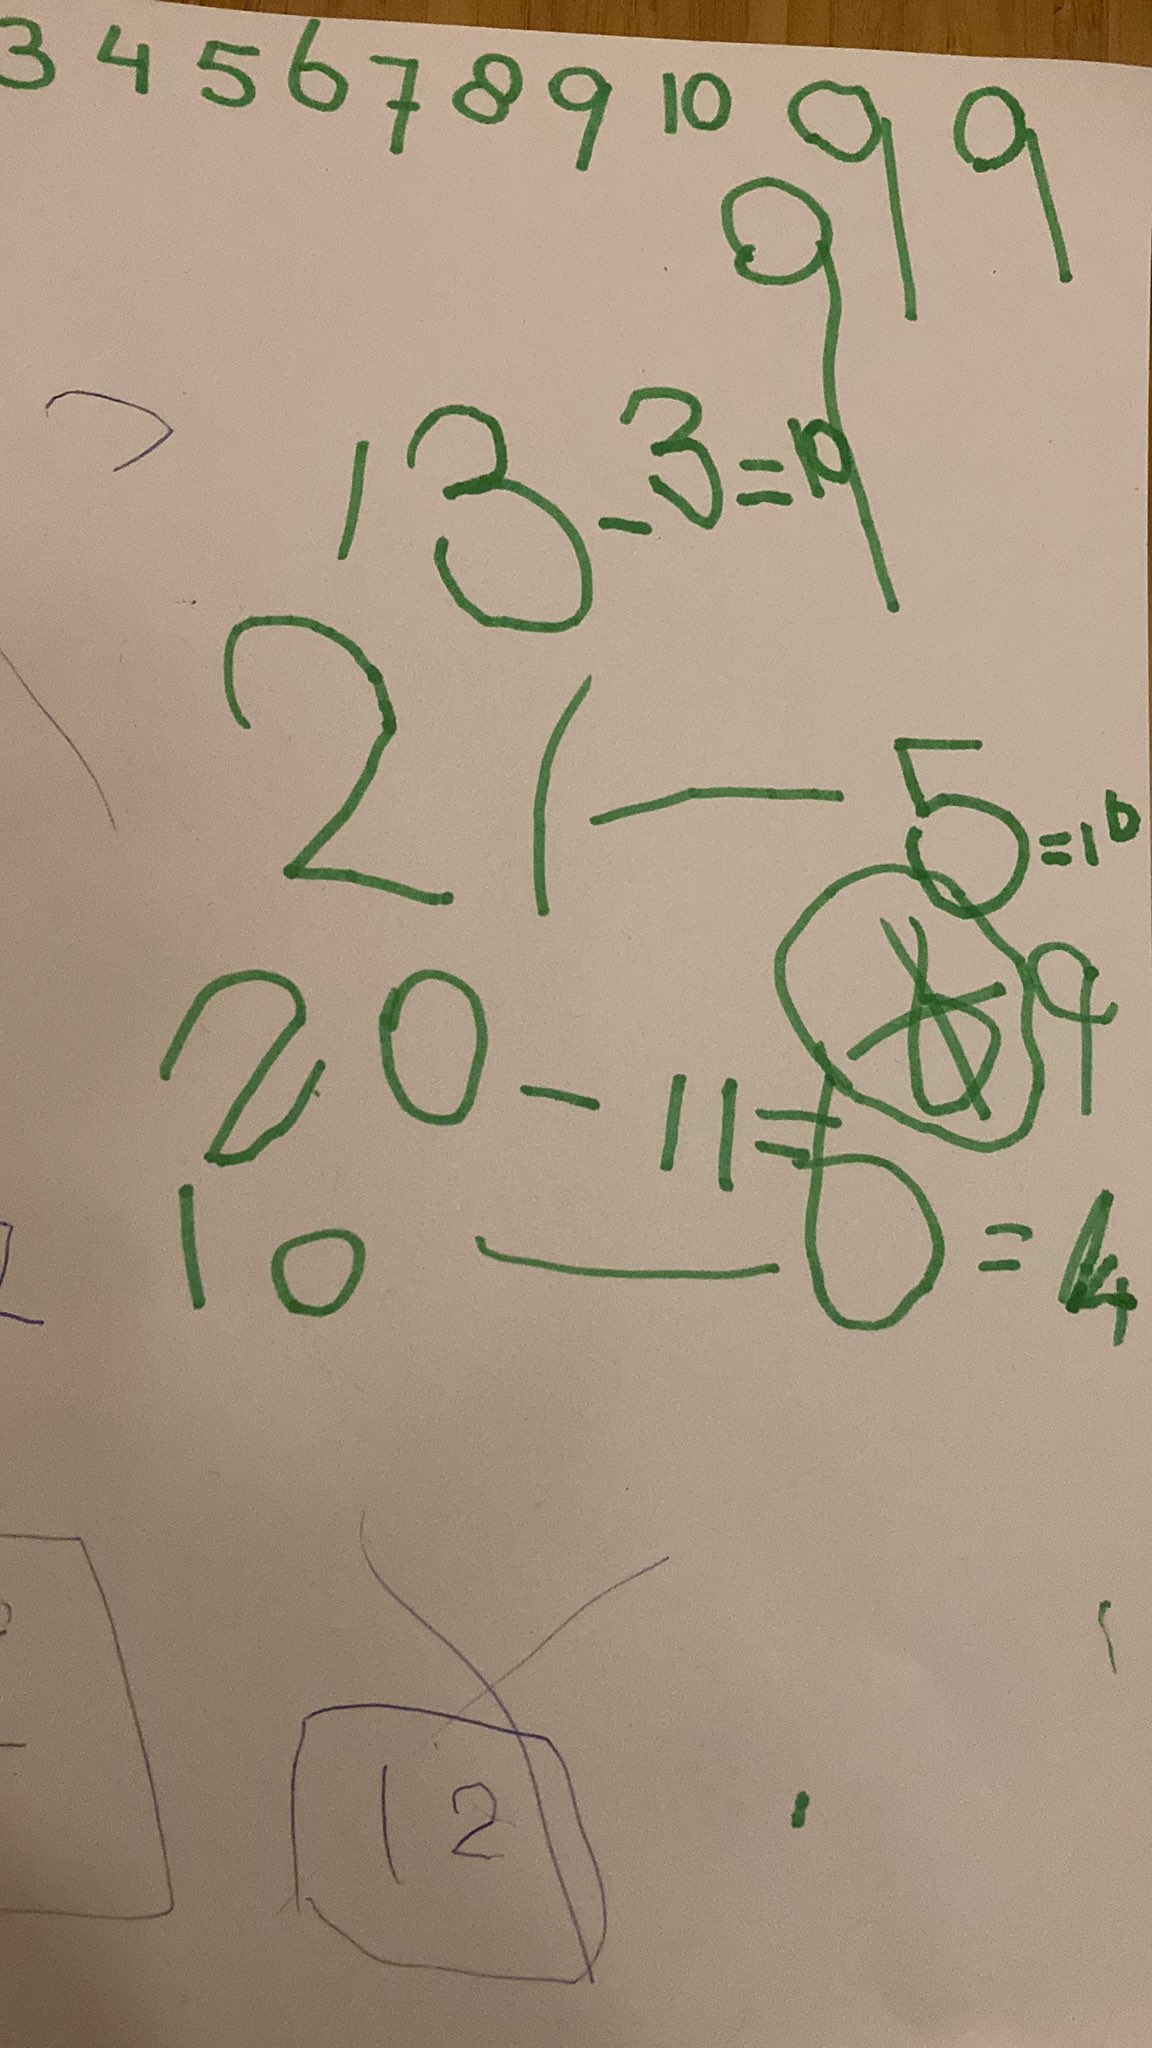 3 4 5 6 7 8 9 10 9 9
9
13-3=10
21-5=16
20-11=9
10-6=4
12